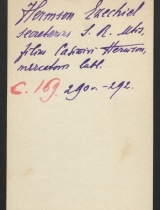 Hermson Ezechiel
secretarius S. R. Mtis.
filius Casimiri Hermson,
mercatoris Lubl.
C. 169. 290v.-292.